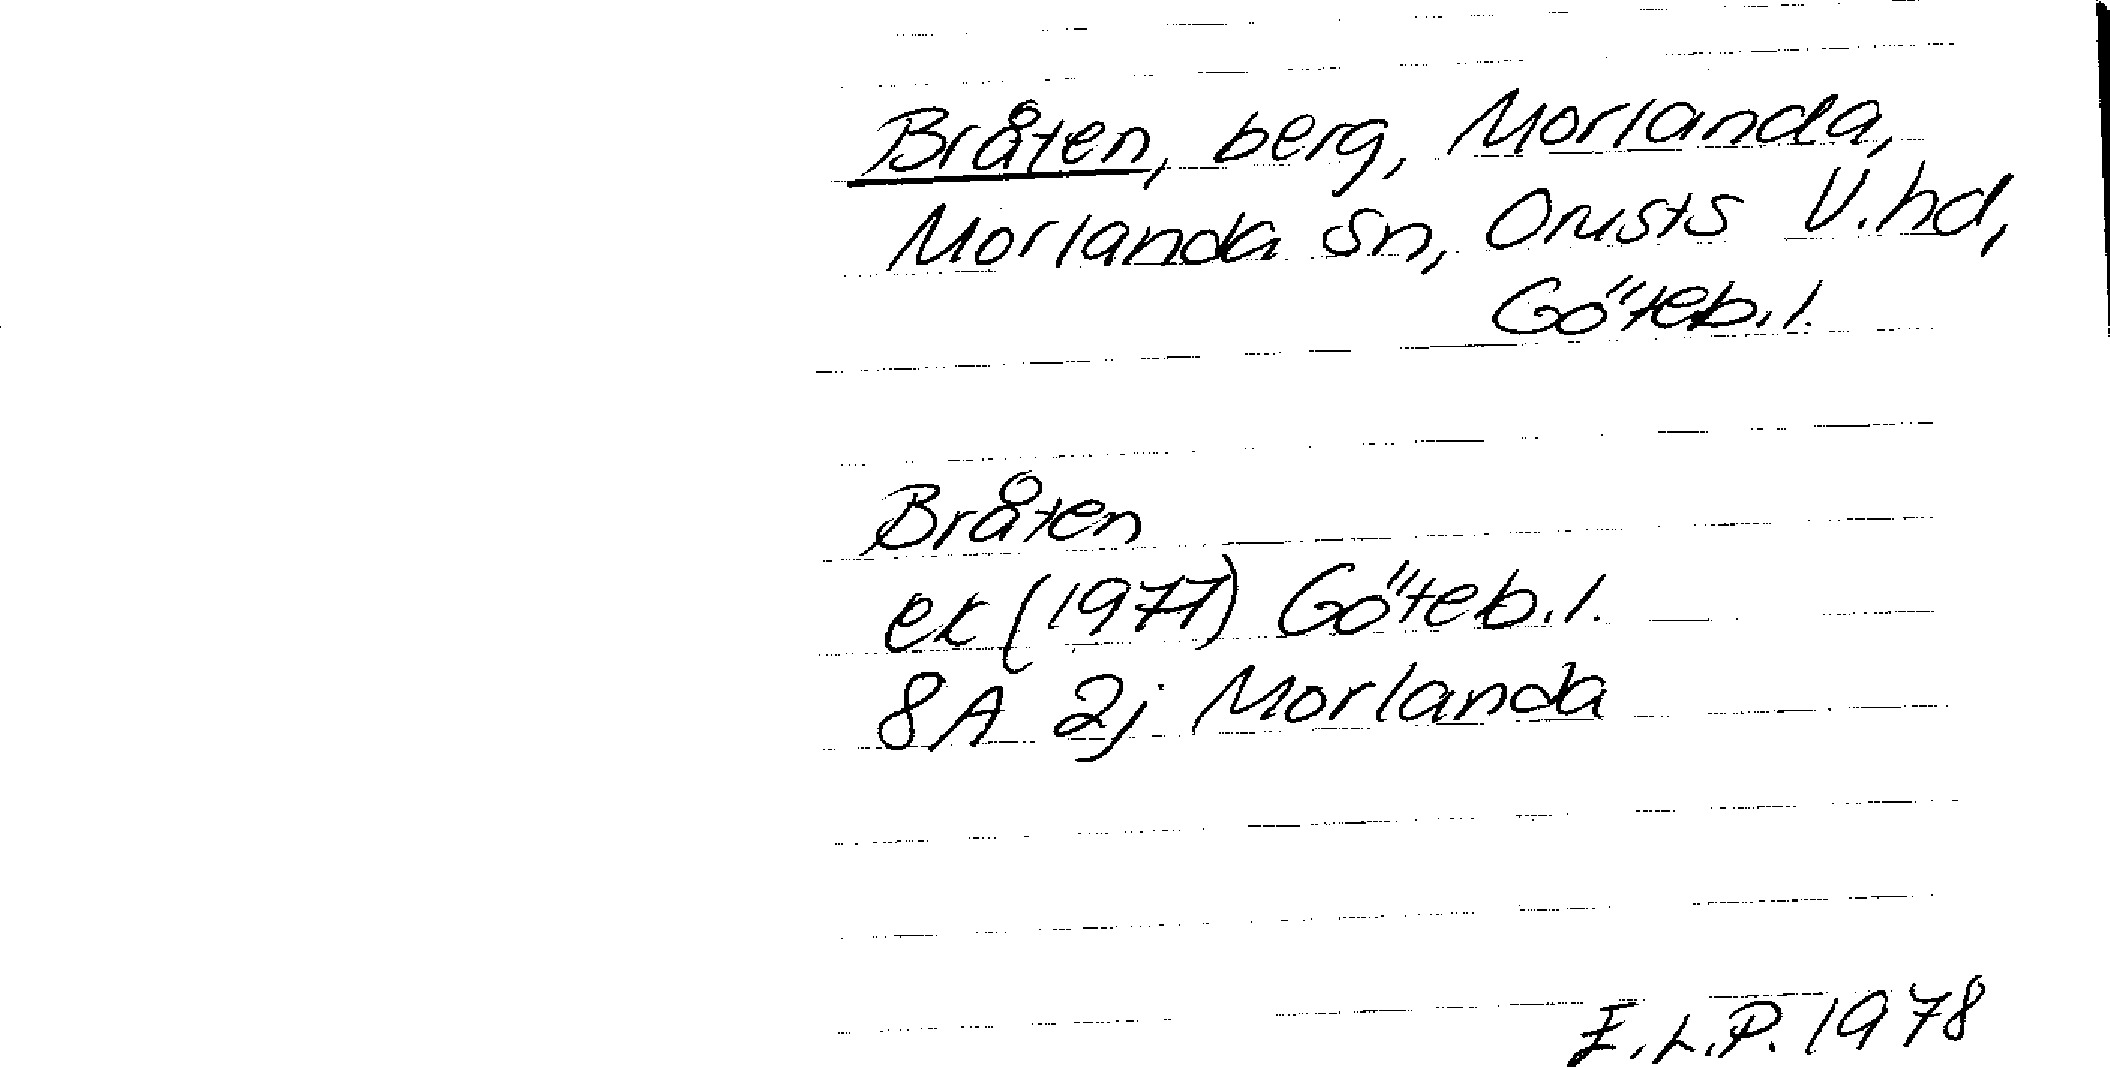 Bråten, berg, Morlanda,
Morlanda sn, Orusts V. hd,
Göteb. l.
Bråten
ek (1977) Göteb. l.
8A 2j Morlanda
E.L.P. 1978